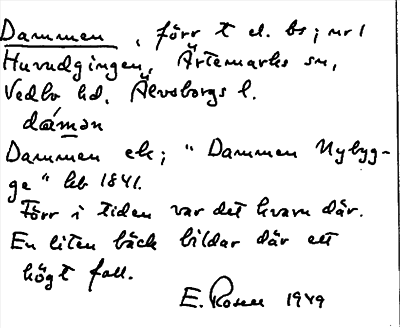 Dammen, förr t el. bs; nr 1
Huvudgingen, Ärtemarks sn,
Vedbo hd, Älvsborgs l.
dámən
Dammen ek; "Dammen Nybyg-
ge" hb 1841.
Förr i tiden var det kvarn där.
En liten bäck bildar där ett
högt fall.
E. Rosell 1949